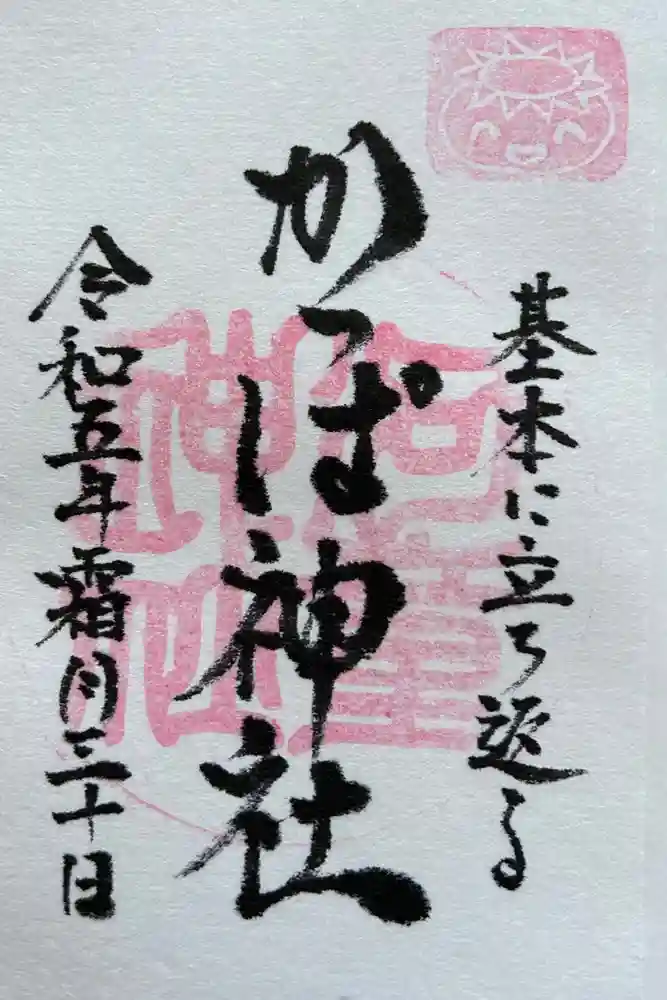 基本に立ち返る
かっぱ神社
令和五年霜月三十日